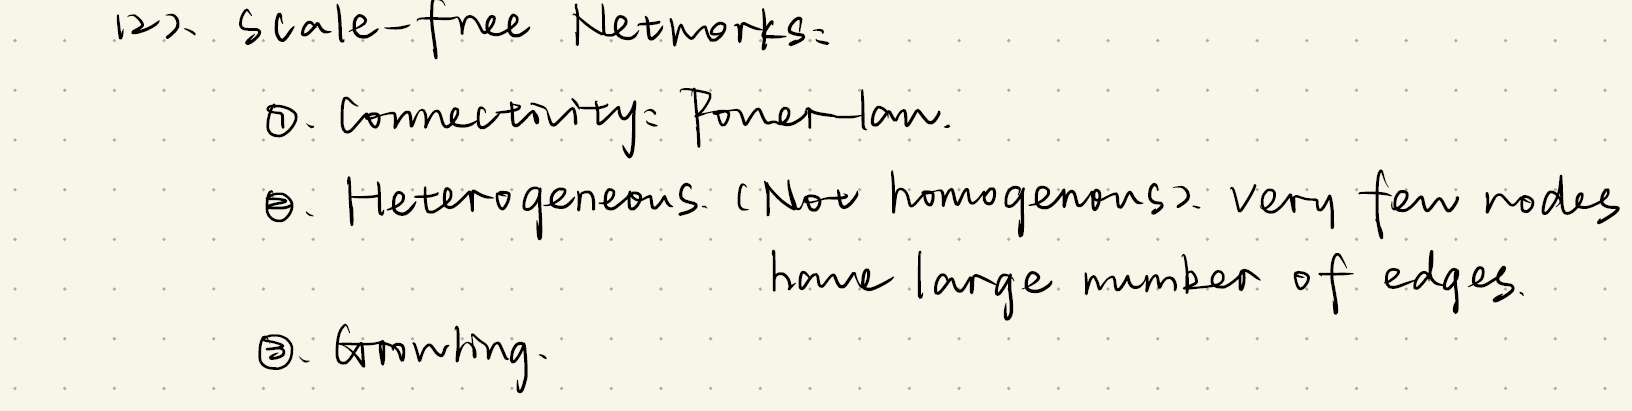 (2)、Scale-free Networks:
①. Connectivity: Power-law.
②. Heterogeneous. (Not homogenous). very few nodes
have large number of edges.
③. Growting.